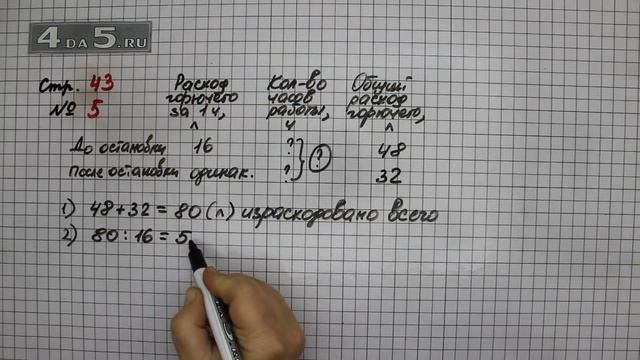 4DA5.RU
Стр. 43 Расход Кол-во Общий
№ 5 горючего часов расход
за 1 ч, работы, горючего,
л ч л
До остановки 16 ? 48
После остановки одинак. ? } ? 32
1) 48+32 = 80 (л) израсходовано всего
2) 80 : 16 = 5